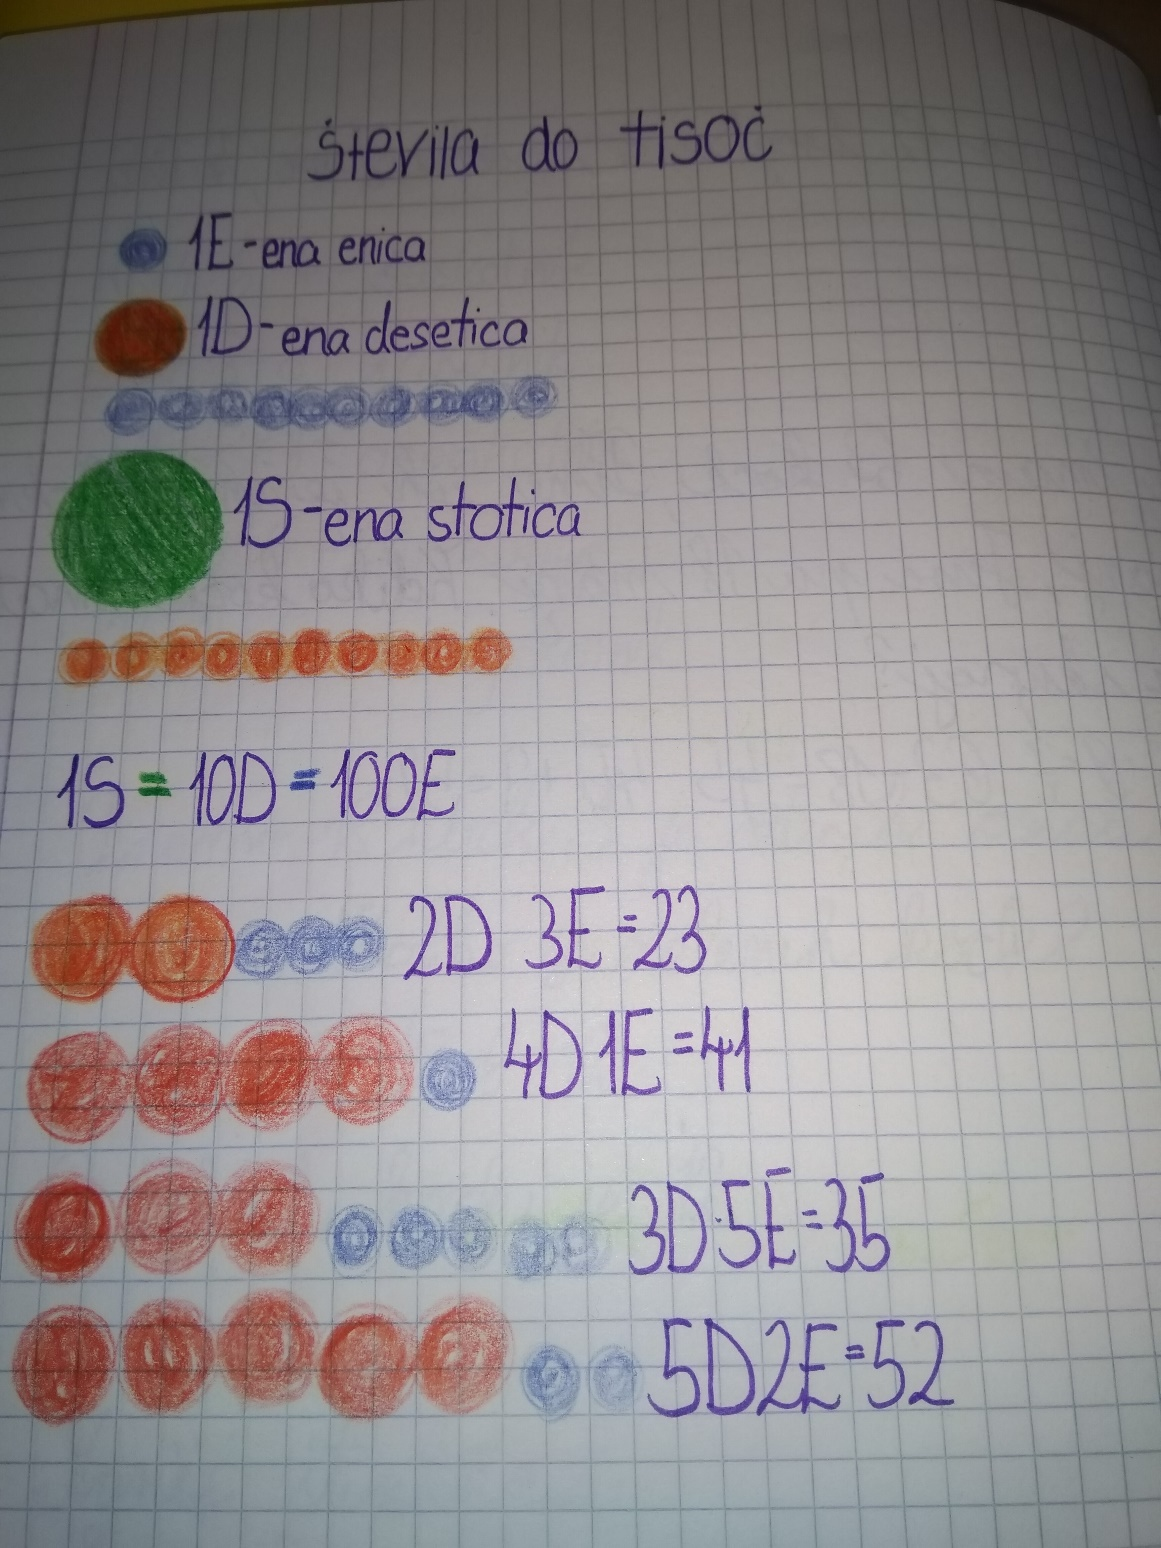 Števila do tisoč
1E-ena enica
1D-ena desetica
1S-ena stotica
1S=10D=100E
2D 3E=23
4D 1E=41
3D 5E=35
5D2E=52